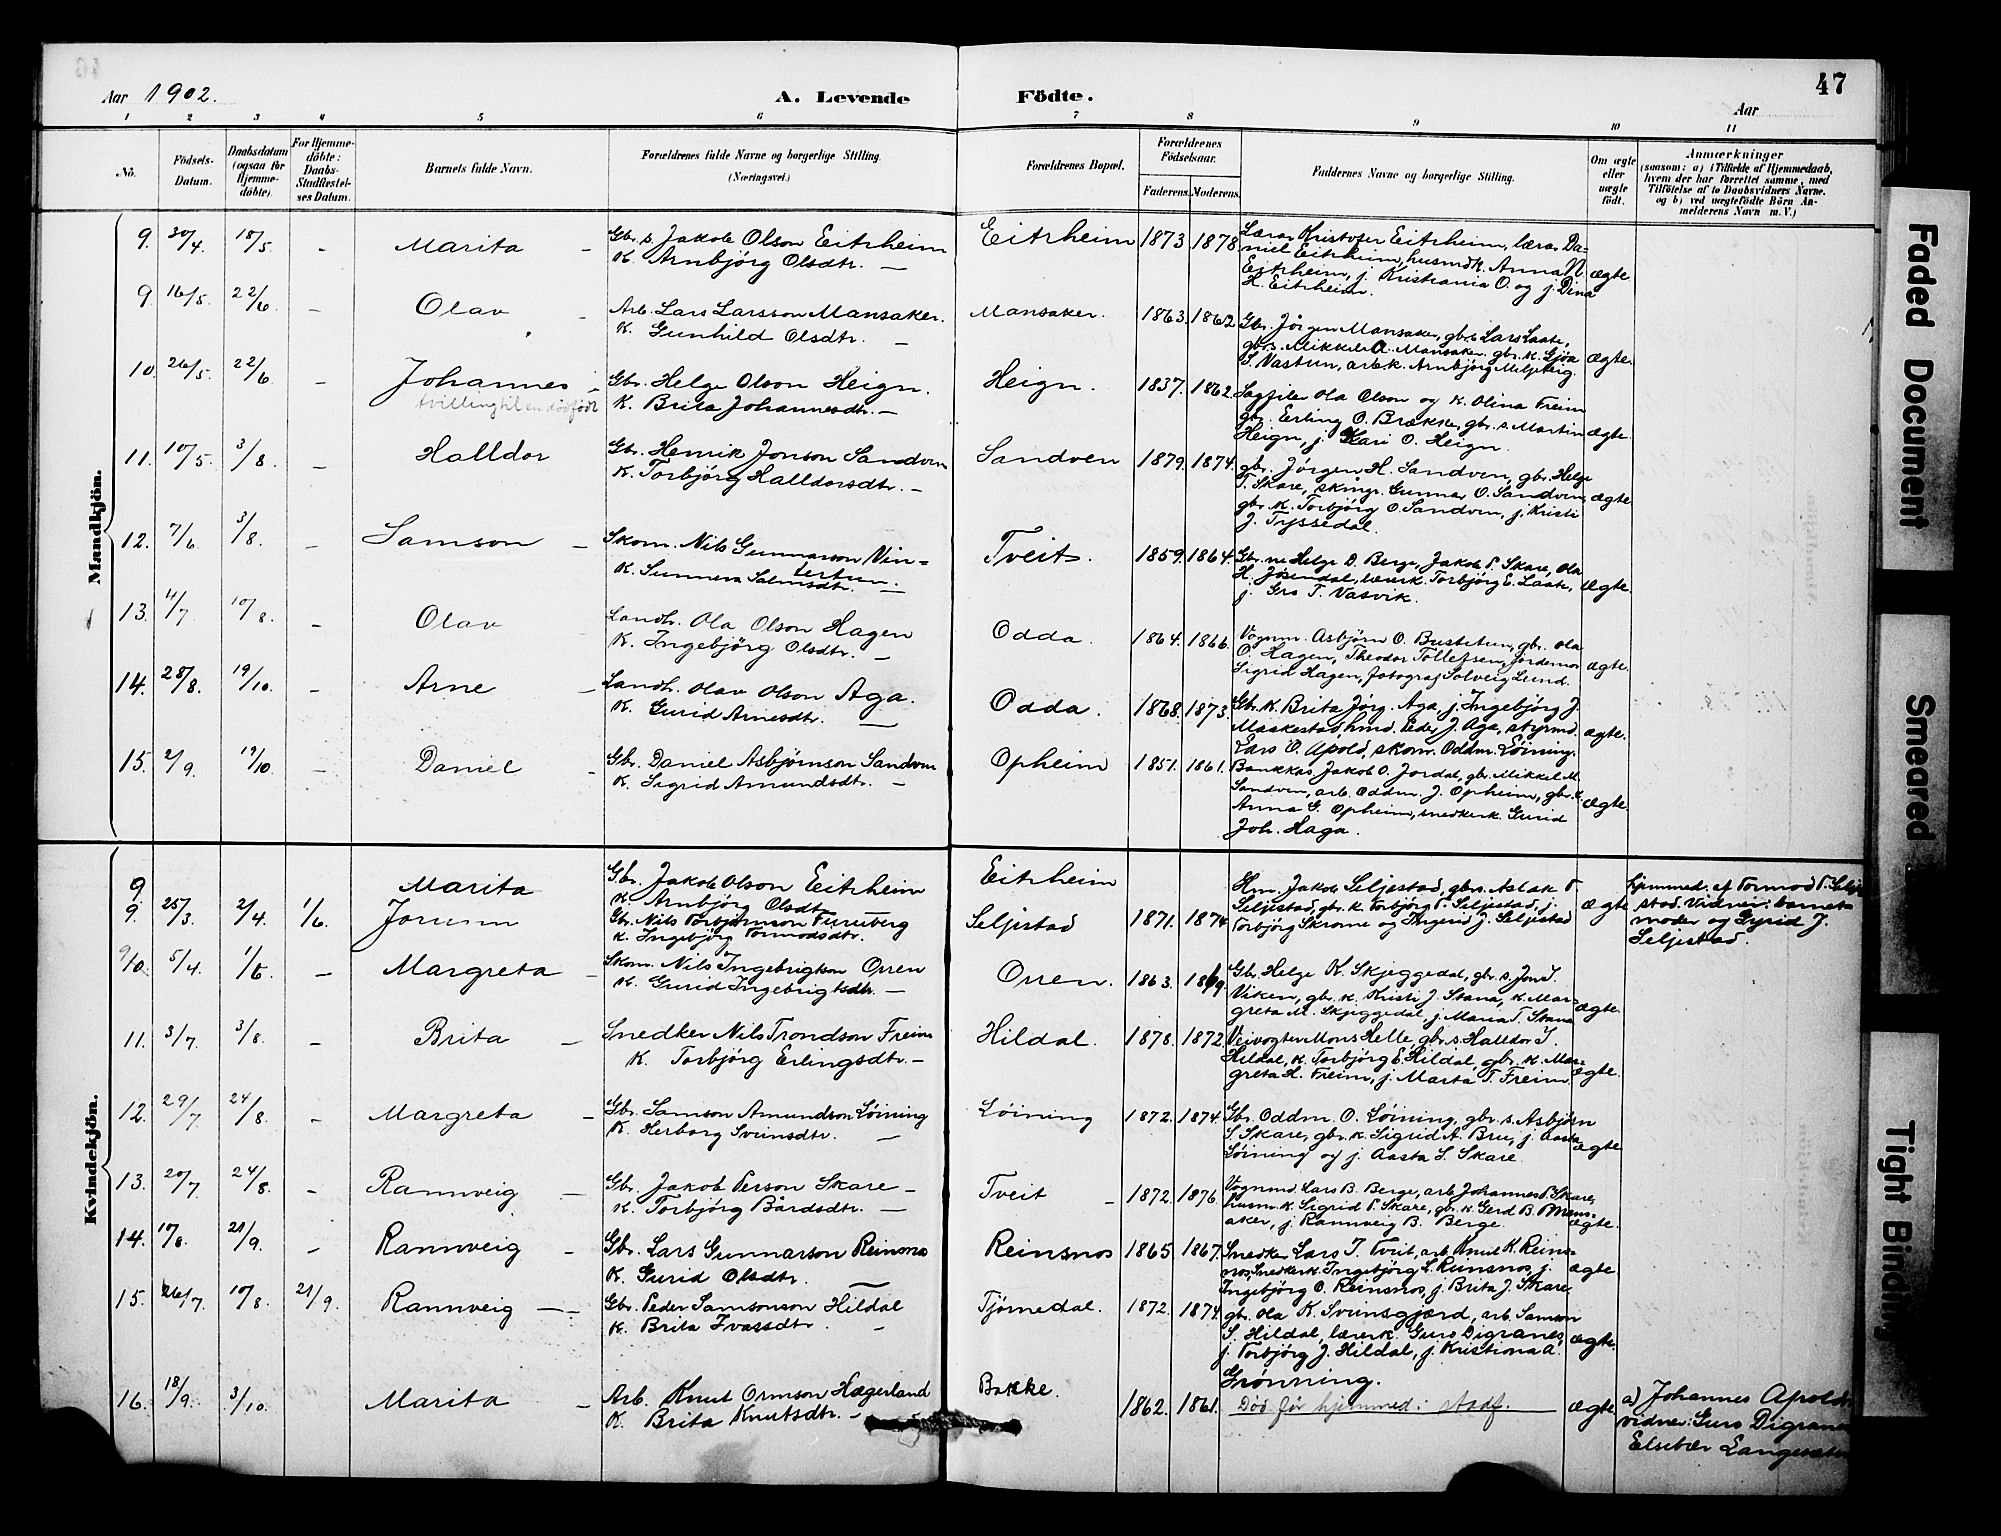 Aar 1902.
A. Levende Födte.
Aar
47
1 2 3 4 5 6 7 8 9 10 11
No.
Födsels-Datum.
Daabsdatum (ogsaa for Hjemmedöbte).
For Hjemmedöbte: Daabs-Stadfæstelses Datum.
Barnets fulde Navn.
Forældrenes fulde Navne og borgerlige Stilling. (Næringsvei.)
Forældrenes Bopæl.
Forældrenes Födselsaar.
Faderens. Moderens.
Faddernes Navne og borgerlige Stilling.
Om ægte eller uægte født.
Anmærkninger
(saasom: a) i Tilfælde af Hjemmedaab, hvem der har forrettet samme, med Tilföielse af to Daabsvidners Navne, og b) ved uægtefödte Börn Anmelderens Navn m. V.)
Mandkjön.
9. 30/4 18/5 - Marita - Gbr. s. Jakob Olson Eitrheim
K. Arnbjörg Olsdtr. —
Eitrheim 1873 1878
Lærer Kristofer Eitrheim, lærer Da-
niel Eitrheim, husmdk. Anna N.
Eitrheim, j. Kristiania O. og j. Dina
H. Eitrheim.
ægte
9. 16/5. 22/6. - Olav - Arb. Lars Larsson Mansaker.
K. Gunhild Olsdtr. —
Mansaker. 1863. 1862
Gbr. Jörgen Mansaker, gbr. s. Lars Laate,
gbr. s. Mikkel A. Mansaker, gbr. k. Gjöa
S. Vastun, arb. k. Arnbjörg Miljeteig.
ægte.
10. 26/5. 22/6. - Johannes -
tvilling til en dødfødt
Gbr. Helge Olson Heign.
K. Brita Johannesdtr. —
Heign. 1837. 1862.
Sagfiler Ola Olson og k. Olina Freim
gbr. Erling O. Brække, gbr. s. Martin
Heign, j. Kari O. Heign.
ægte.
11. 10/5. 3/8. - Halldor
Gbr. Henrik Jonson Sandven
K. Torbjörg Halldorsdtr. —
Sandven 1879. 1874.
gbr. Jörgen H. Sandven, gbr. Helge
T. Skare, Gunnar O. Sandven,
gbr. k. Torbjörg O. Sandven, j. Kristi
J. Tyssedal.
ægte.
12. 7/6 3/8. - Samson -
Skom. Nils Gunnarson Vin-
tertun.
K. Sunneva Salmsdtr. —
Tveit. 1859. 1864.
Gbr. ne Helge D. Berge, Jakob P. Skare, Ola
H. Jösendal, lærerk. Torbjörg E. Laate,
j. Gro T. Vasvik.
ægte.
13. 4/7. 10/8. - Olav
Landh. Ola Olson Hagen
K. Ingebjörg Olsdtr. —
Odda. 1864. 1866.
Vognm. Asbjörn O. Bustetun, gbr. Ola
O. Hagen, Theodor Tollefsen, jordemor
Sigrid Hagen, fotograf Solveig Lund.
ægte.
14. 28/8. 19/10. - Arne -
Landh. Olav Olson Aga.
K. Gurid Arnesdtr. —
Odda. 1868. 1873.
Gbr. k. Brita Jörg. Aga, j. Ingebjörg J.
Maakestad, hmd. Peder J. Aga, styrmd.
Lars O. Apold, skom. Oddm. Löining.
ægte.
15. 2/9. 19/10. - Daniel -
Gbr. Daniel Asbjørnson Sandven
K. Sigrid Amundsdtr. —
Opheim 1851. 1861.
Bankkas. Jakob O. Jordal, gbr. Mikkel M.
Sandven, arb. Oddm. J. Opheim, gbr. k.
Anna G. Opheim, snedkerk. Gurid
Joh. Haga.
ægte.
Kvindekjön.
9 Marita
Gbr. Jakob Olson Eitrheim
K. Arnbjörg Olsdtr.
Eitrheim
9. 25/3. 2/4. 1/6. Jorunn
Gbr. Nils Torbjørnson Furuberg
K. Ingebjörg Tormodsdtr.
Seljestad 1871. 1874
Hm. Jakob Seljestad, gbr. s. Aslak T.
Seljestad, gbr. k. Torbjörg T. Seljestad, j.
Torbjörg Skrome og Ingerid J. Seljestad
ægte
hjemmed. af Tormod T. Selje-
stad. Vidner: barnets
moder og Gyrid J.
Seljestad.
9/10. 5/4. 1/6. - Margreta -
Skom. Nils Ingebrigtson Orren
K. Gurid Ingebrigtsdtr. —
Orren. 1863. 1869.
Gbr. Helge K. Skjeggedal, gbr. s. Jon J.
Viken, gbr. k. Kristi J. Stana, k. Mar-
greta M. Skjeggedal, j. Maria T. Stana
ægte.
11. 3/7. 3/8. - Brita -
Snedker Nils Trondson Freim
K. Torbjörg Erlingsdtr. —
Hildal. 1878. 1872.
Veivogter Mons Helle, gbr. s. Halldor J.
Hildal, k. Torbjörg E. Hildal, gbr. k. Mar-
greta H. Freim, j. Marta T. Freim
ægte.
12. 29/7 24/8. - Margreta -
Gbr. Samson Amundson Löining
K. Herborg Sveinsdtr. —
Löining 1872. 1874.
Gbr. Oddm. O. Löining, gbr. s. Asbjörn
S. Skare, gbr. k. Sigrid A. Bru, j. Aasta
Löining og j. Aasta S. Skare.
ægte
13. 20/7. 24/8. - Rannveig -
Gbr. Jakob Person Skare —
K. Torbjörg Bårdsdtr. —
Tveit - 1872. 1876
Vognmd. Lars B. Berge, arb. Johannes P. Skare,
husm. k. Sigrid P. Skare, gbr. k. Gerd B. Mans-
aker, j. Rannveig B. Berge.
ægte.
14. 17/8. 21/9. - Rannveig -
Gbr. Lars Gunnarson Reinsnos
K. Gurid Olsdtr. —
Reinsnos 1865. 1867.
Snedker Lars T. Tveit, arb. Knut K. Reins-
nos, Snedkerk. Ingebjörg L. Reinsnos, j.
Ingebjörg O. Reinsnos, j. Brita J. Skare
ægte.
15. 26/7. 10/8. 21/9. Rannveig —
Gbr. Peder Samsonson Hildal
K. Brita Ivarsdtr. —
Tjörnedal. 1872. 1874.
gbr. Ola K. Sveinsgjærd, arb. Samson
S. Hildal, lærerk. Guro Digranes,
j. Torbjörg J. Hildal, j. Kristiona A.
Grönning.
ægte.
16. 18/9. 3/10. Marita -
Arb. Knut Ormson Hægerland
K. Brita Knutsdtr. —
Bakke. 1862. 1861.
Död før hjemmed: stadf.
ægte
a) Johannes Apold,
vidner: Guro Digranes
Elsebær Langesæter
Faded Document
Smeared
Tight Binding